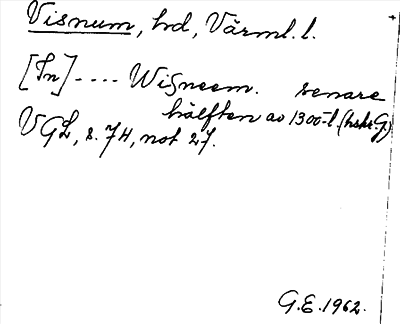 Visnum, hd, Värml. l.
[In] .... Wisneem. senare
hälften av 1300-t. (hskr. G)
VGL, s. 74, not 27.
G.E. 1962.